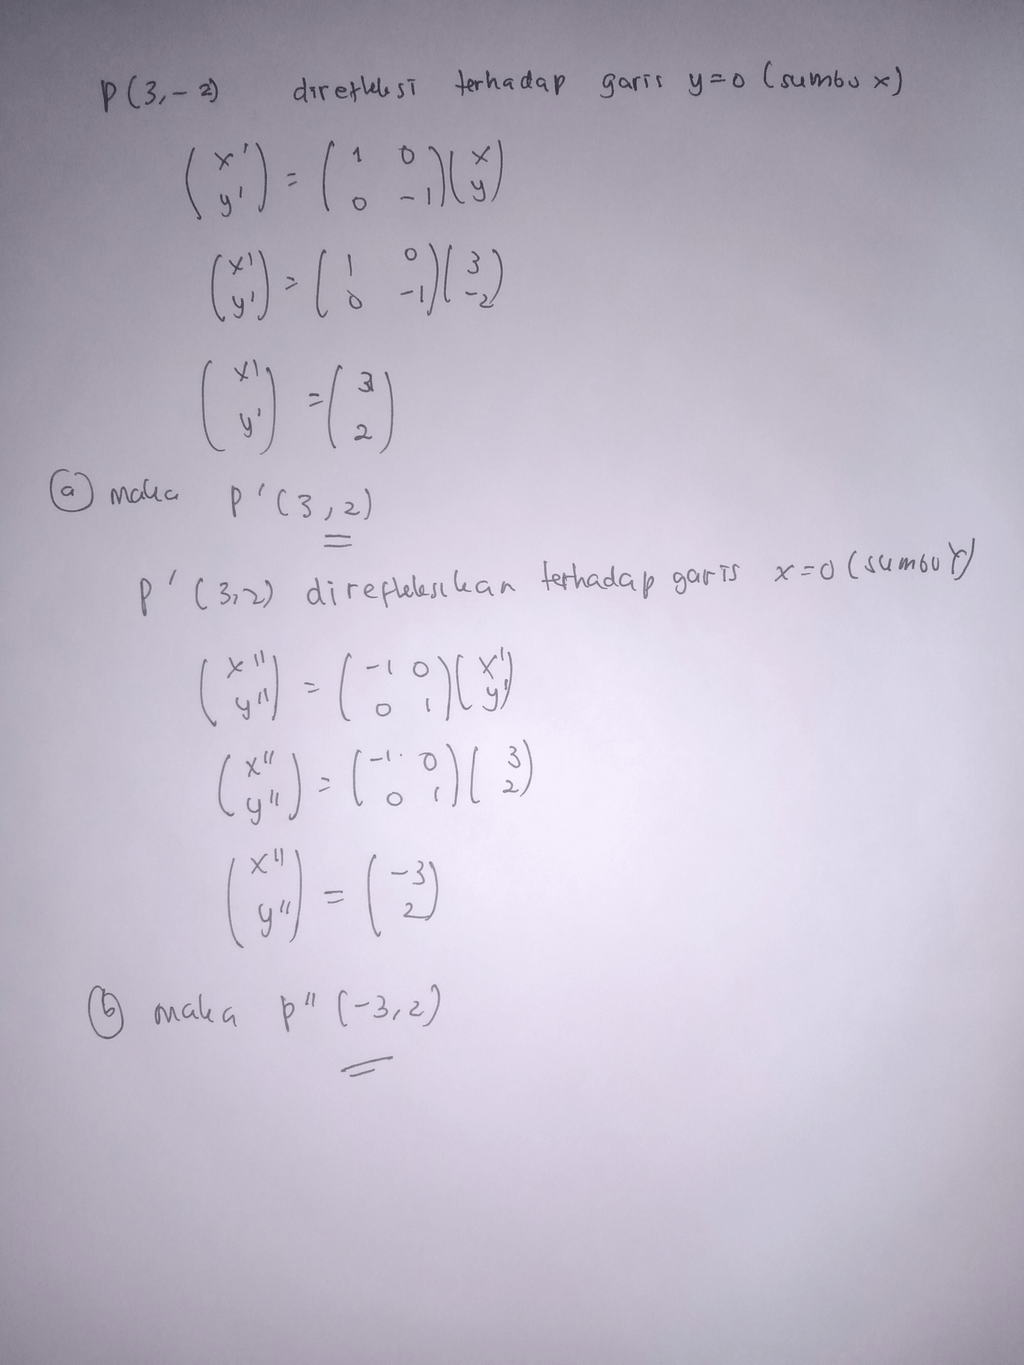 P(3,-2) direfleksi terhadap garis y=0 (sumbu x)
(x' y') = (1 0 0 -1)(x y)
(x' y') = (1 0 0 -1)(3 -2)
(x' y') = (3 2)
(a) maka P'(3,2)
P'(3,2) direfleksikan terhadap garis x=0 (sumbu Y)
(x" y") = (-1 0 0 1)(x' y')
(x" y") = (-1 0 0 1)(3 2)
(x" y") = (-3 2)
(b) maka p"(-3,2)